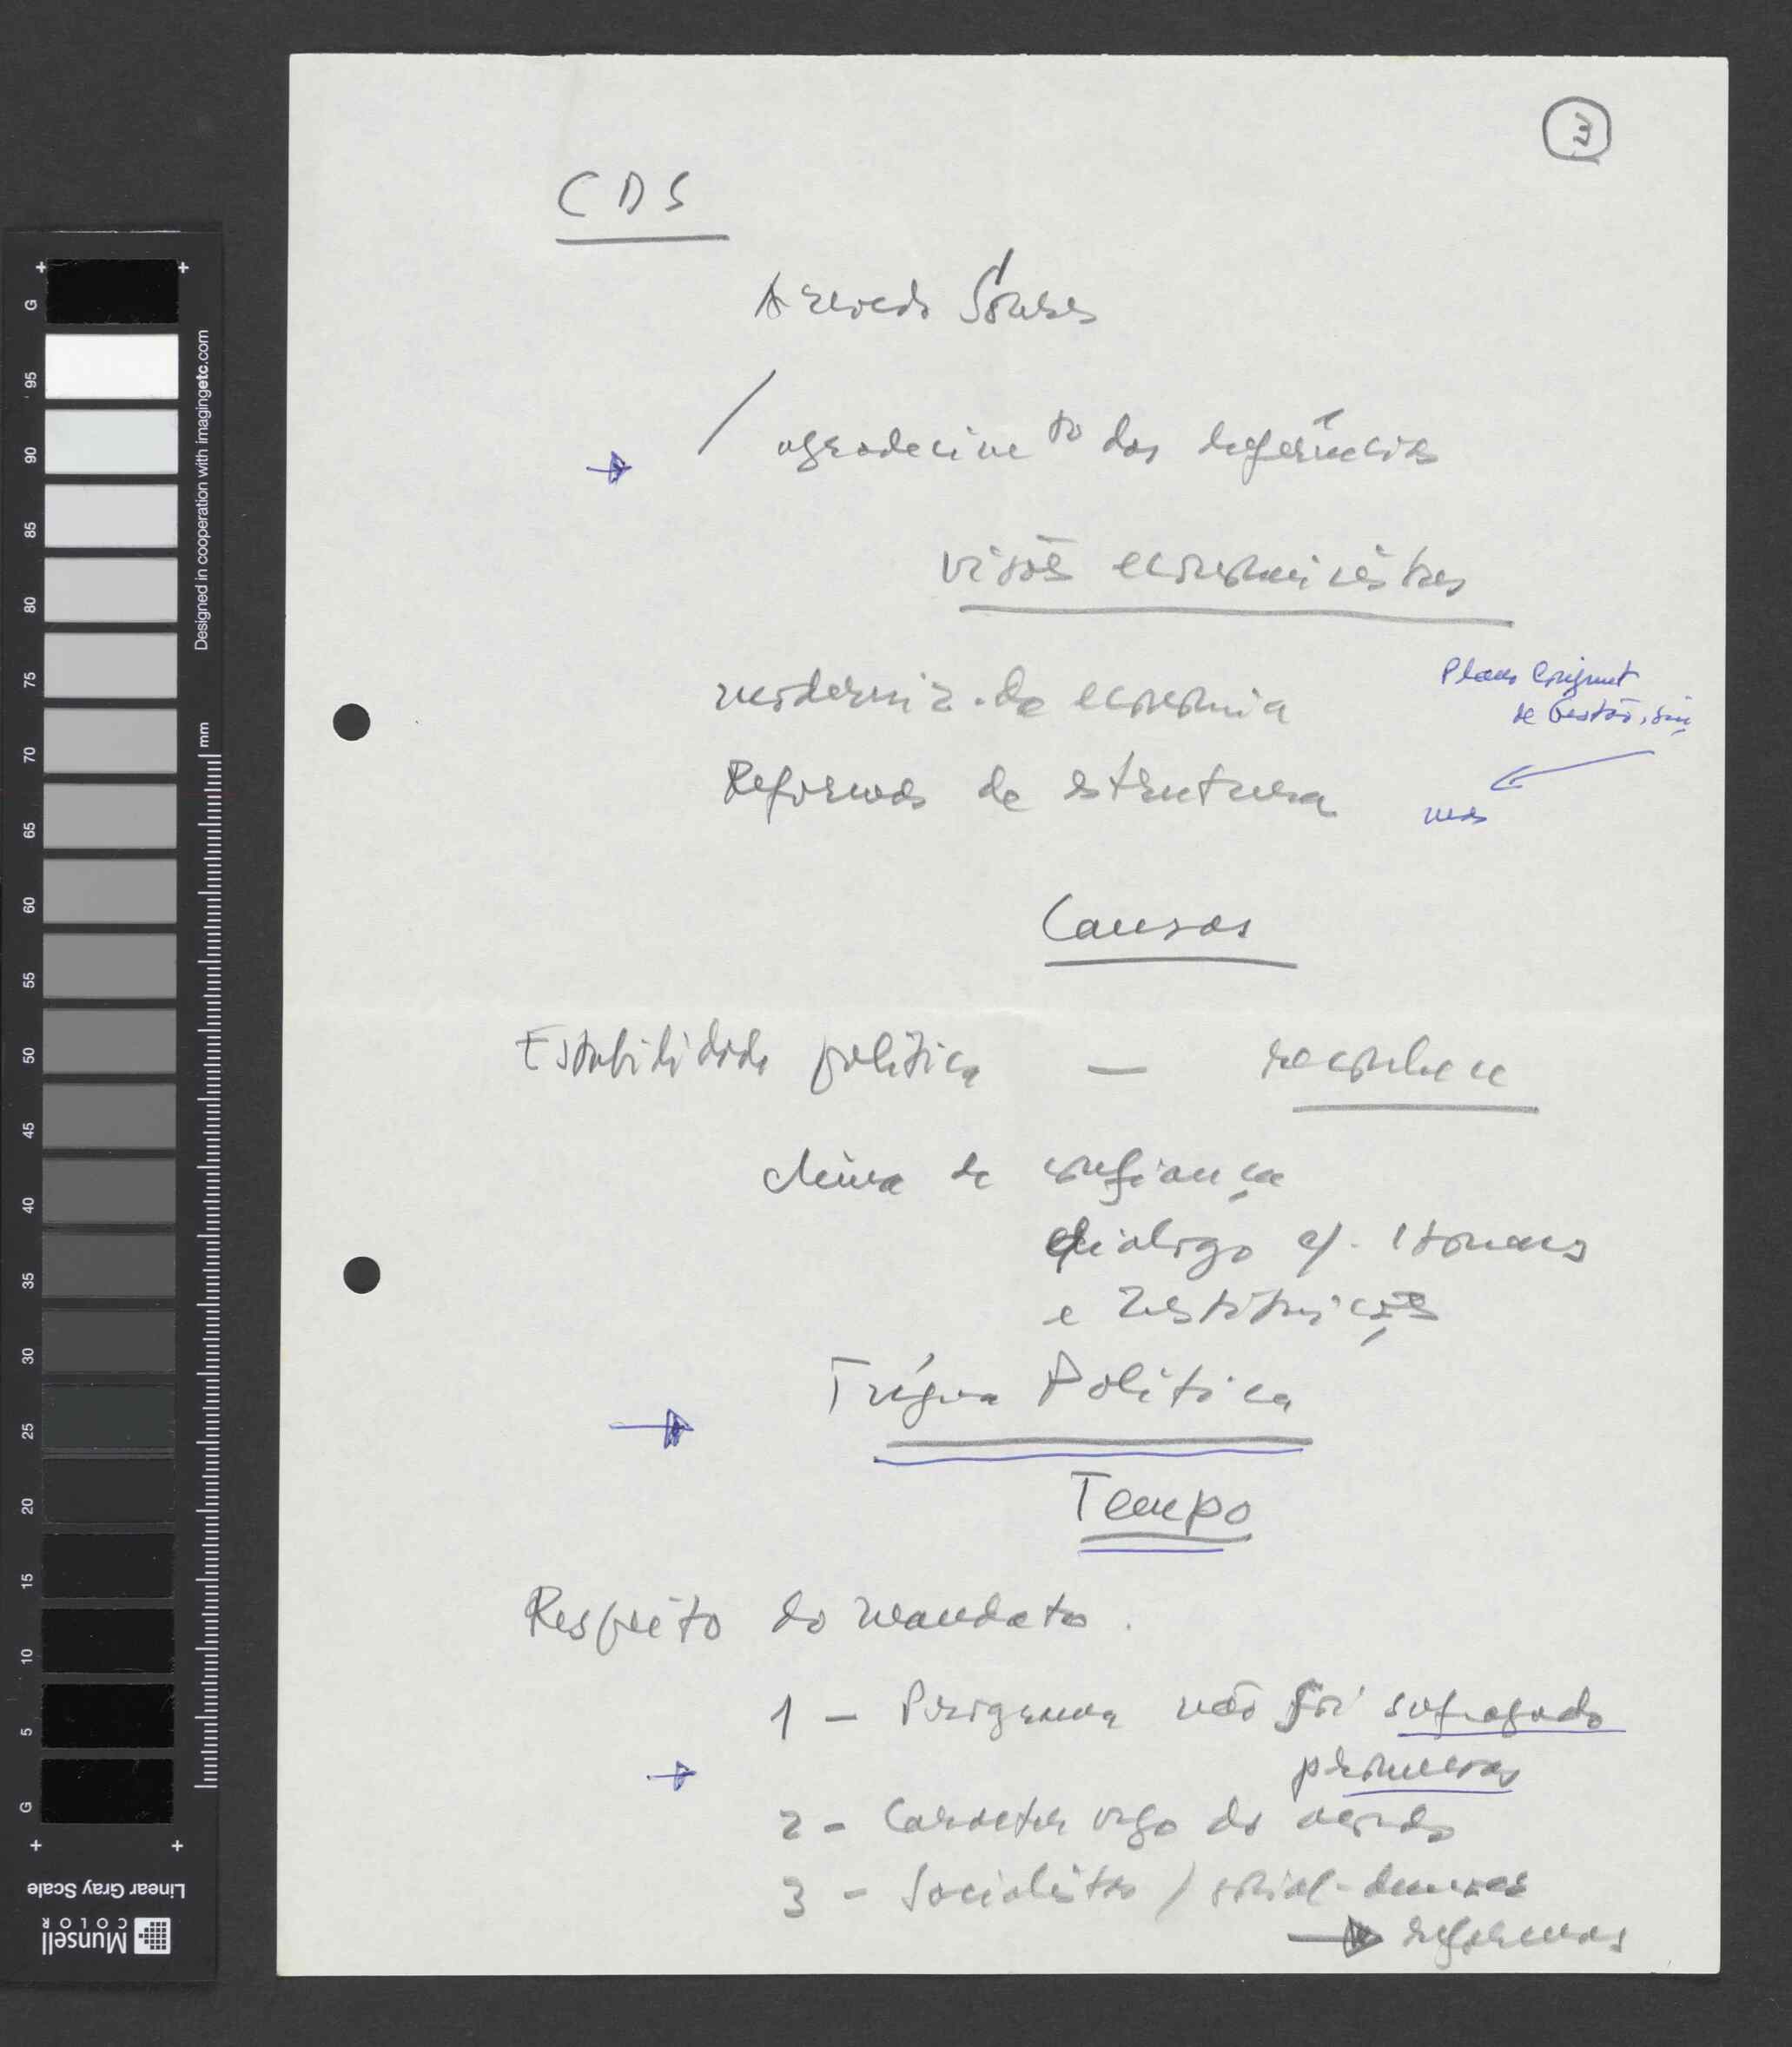 3
CDS
Azevedo Soares
/ agradecimto das deferências
visões economicistas
moderniz. da economia
Plano Conjunt
de Gestão, sim
Reformas de estrutura
mas
Causas
Estabilidade política — reconhece
clima de confiança
diálogo c/. Homens
e Instituições
Trégua Política
Tempo
Respeito do mandato.
1 - Programa não foi sufragado
2 - Caracter vago do acordo
3 - Socialistas / social-democ
→ reformas
G 95 90 85 80 75 70 65 60 55 50 45 40 35 30 25 20 15 10 5 G
Designed in cooperation with imagingetc.com
mm
Linear Gray Scale
Munsell
COLOR